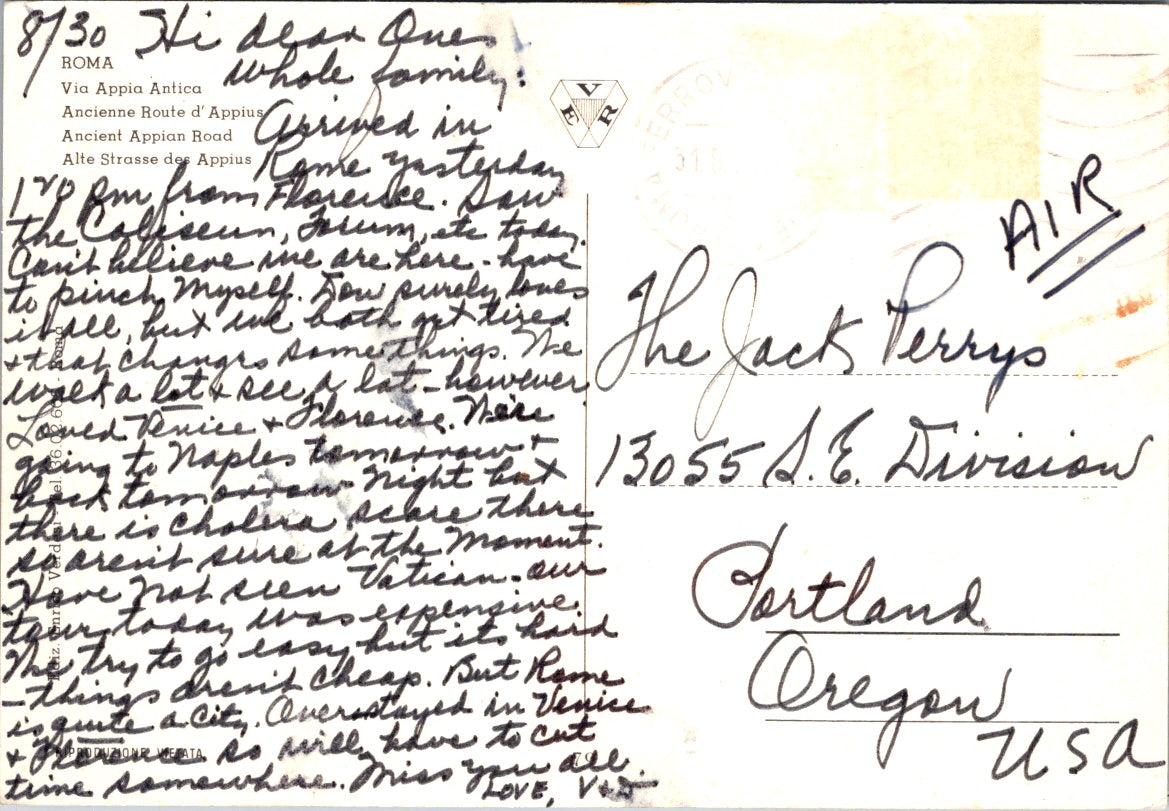 8/30 Hi dear Ones
Whole family:
ROMA
Via Appia Antica
Ancienne Route d'Appius
Ancient Appian Road
Alte Strasse des Appius
Arrived in
Rome yesterday
1²⁰ pm from Florence. Saw
the Coliseum, Forum, etc today.
Can't believe we are here - have
to pinch myself. Don surely loves
it all, but we both get tired
+ that changes some things. We
walk a lot + see a lot - however
Loved Venice + Florence. We're
going to Naples tomorrow +
back tomorrow night but
there is cholera scare there
so aren't sure at the moment.
Have not seen Vatican - our
tour today was expensive.
We try to go easy but its hard
- things aren't cheap. But Rome
is quite a city. Overstayed in Venice
+ Florence so will have to cut
time somewhere. Miss you all.
LOVE, V+D
RIPRODUZIONE VIETATA
VER
AIR
The Jack Perrys
13055 S.E. Division
Portland
Oregon
USA